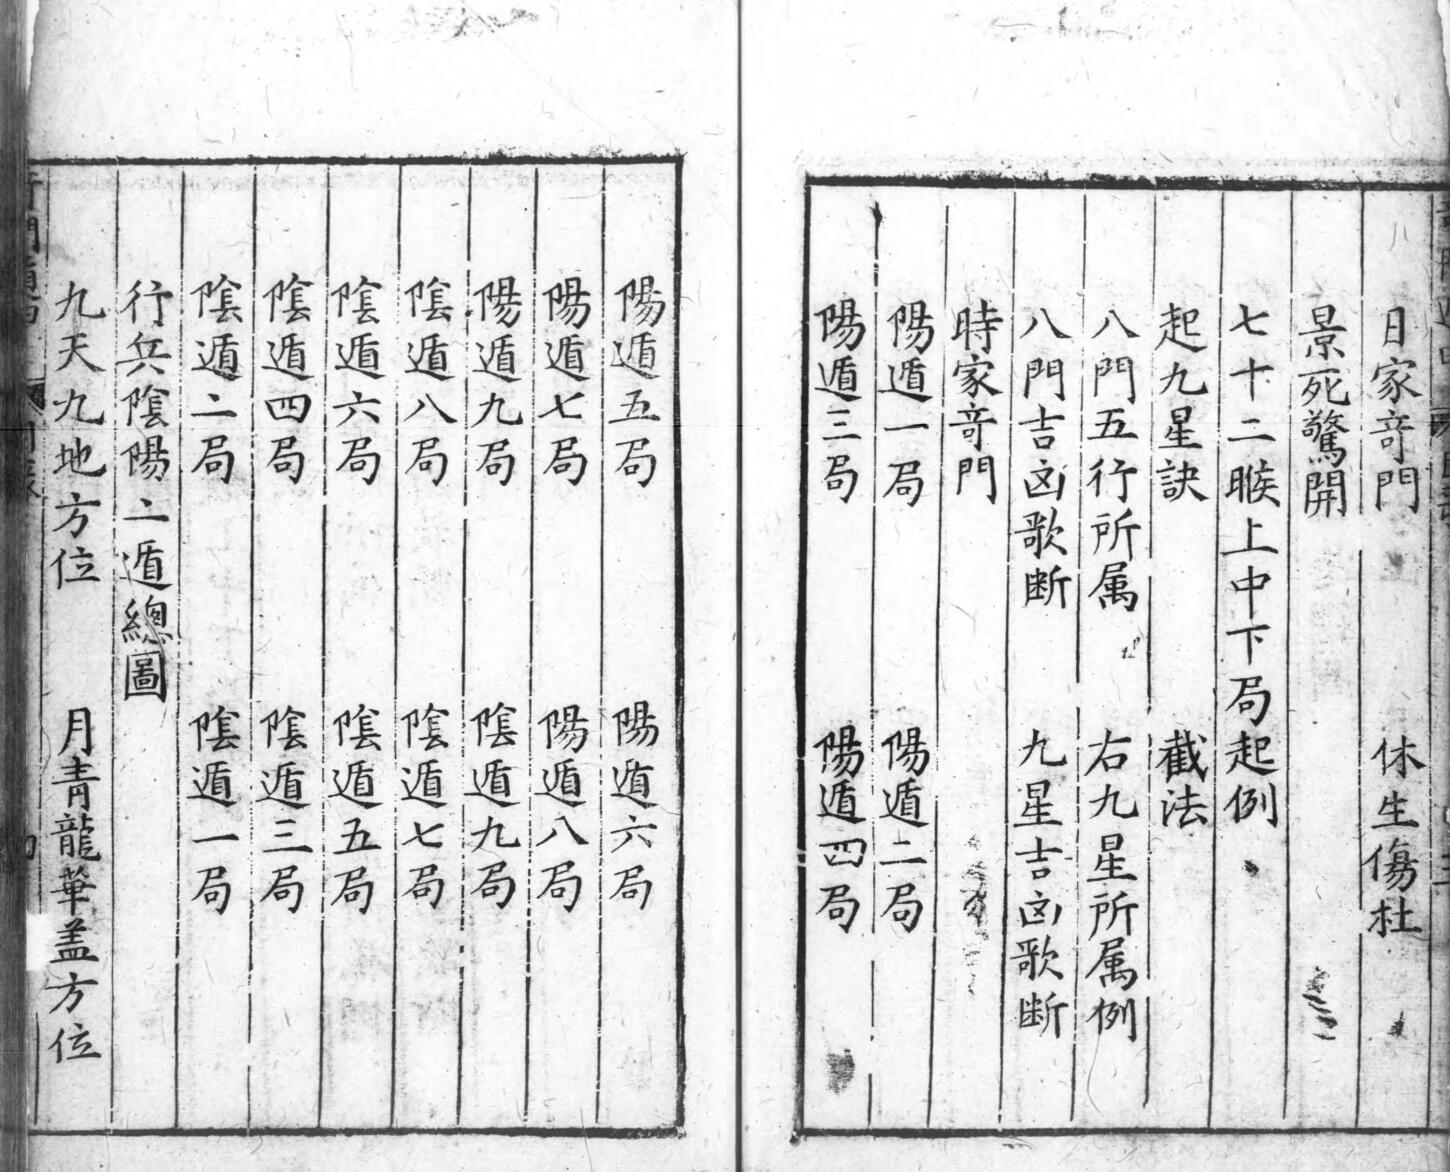 日家竒門　休生傷杜
景死驚開
七十二𠋫上中下局起例
起九星訣　截法
八門五行所属　右九星所属例
八門吉凶歌断　九星吉凶歌断
時家竒門
陽遁一局　陽遁二局
陽遁三局　陽遁四局
陽遁五局　陽遁六局
陽遁七局　陽遁八局
陽遁九局　陰遁九局
陰遁八局　陰遁七局
陰遁六局　陰遁五局
陰遁四局　陰遁三局
陰遁二局　陰遁一局
行兵陰陽二遁總圖
九天九地方位　月青龍華盖方位